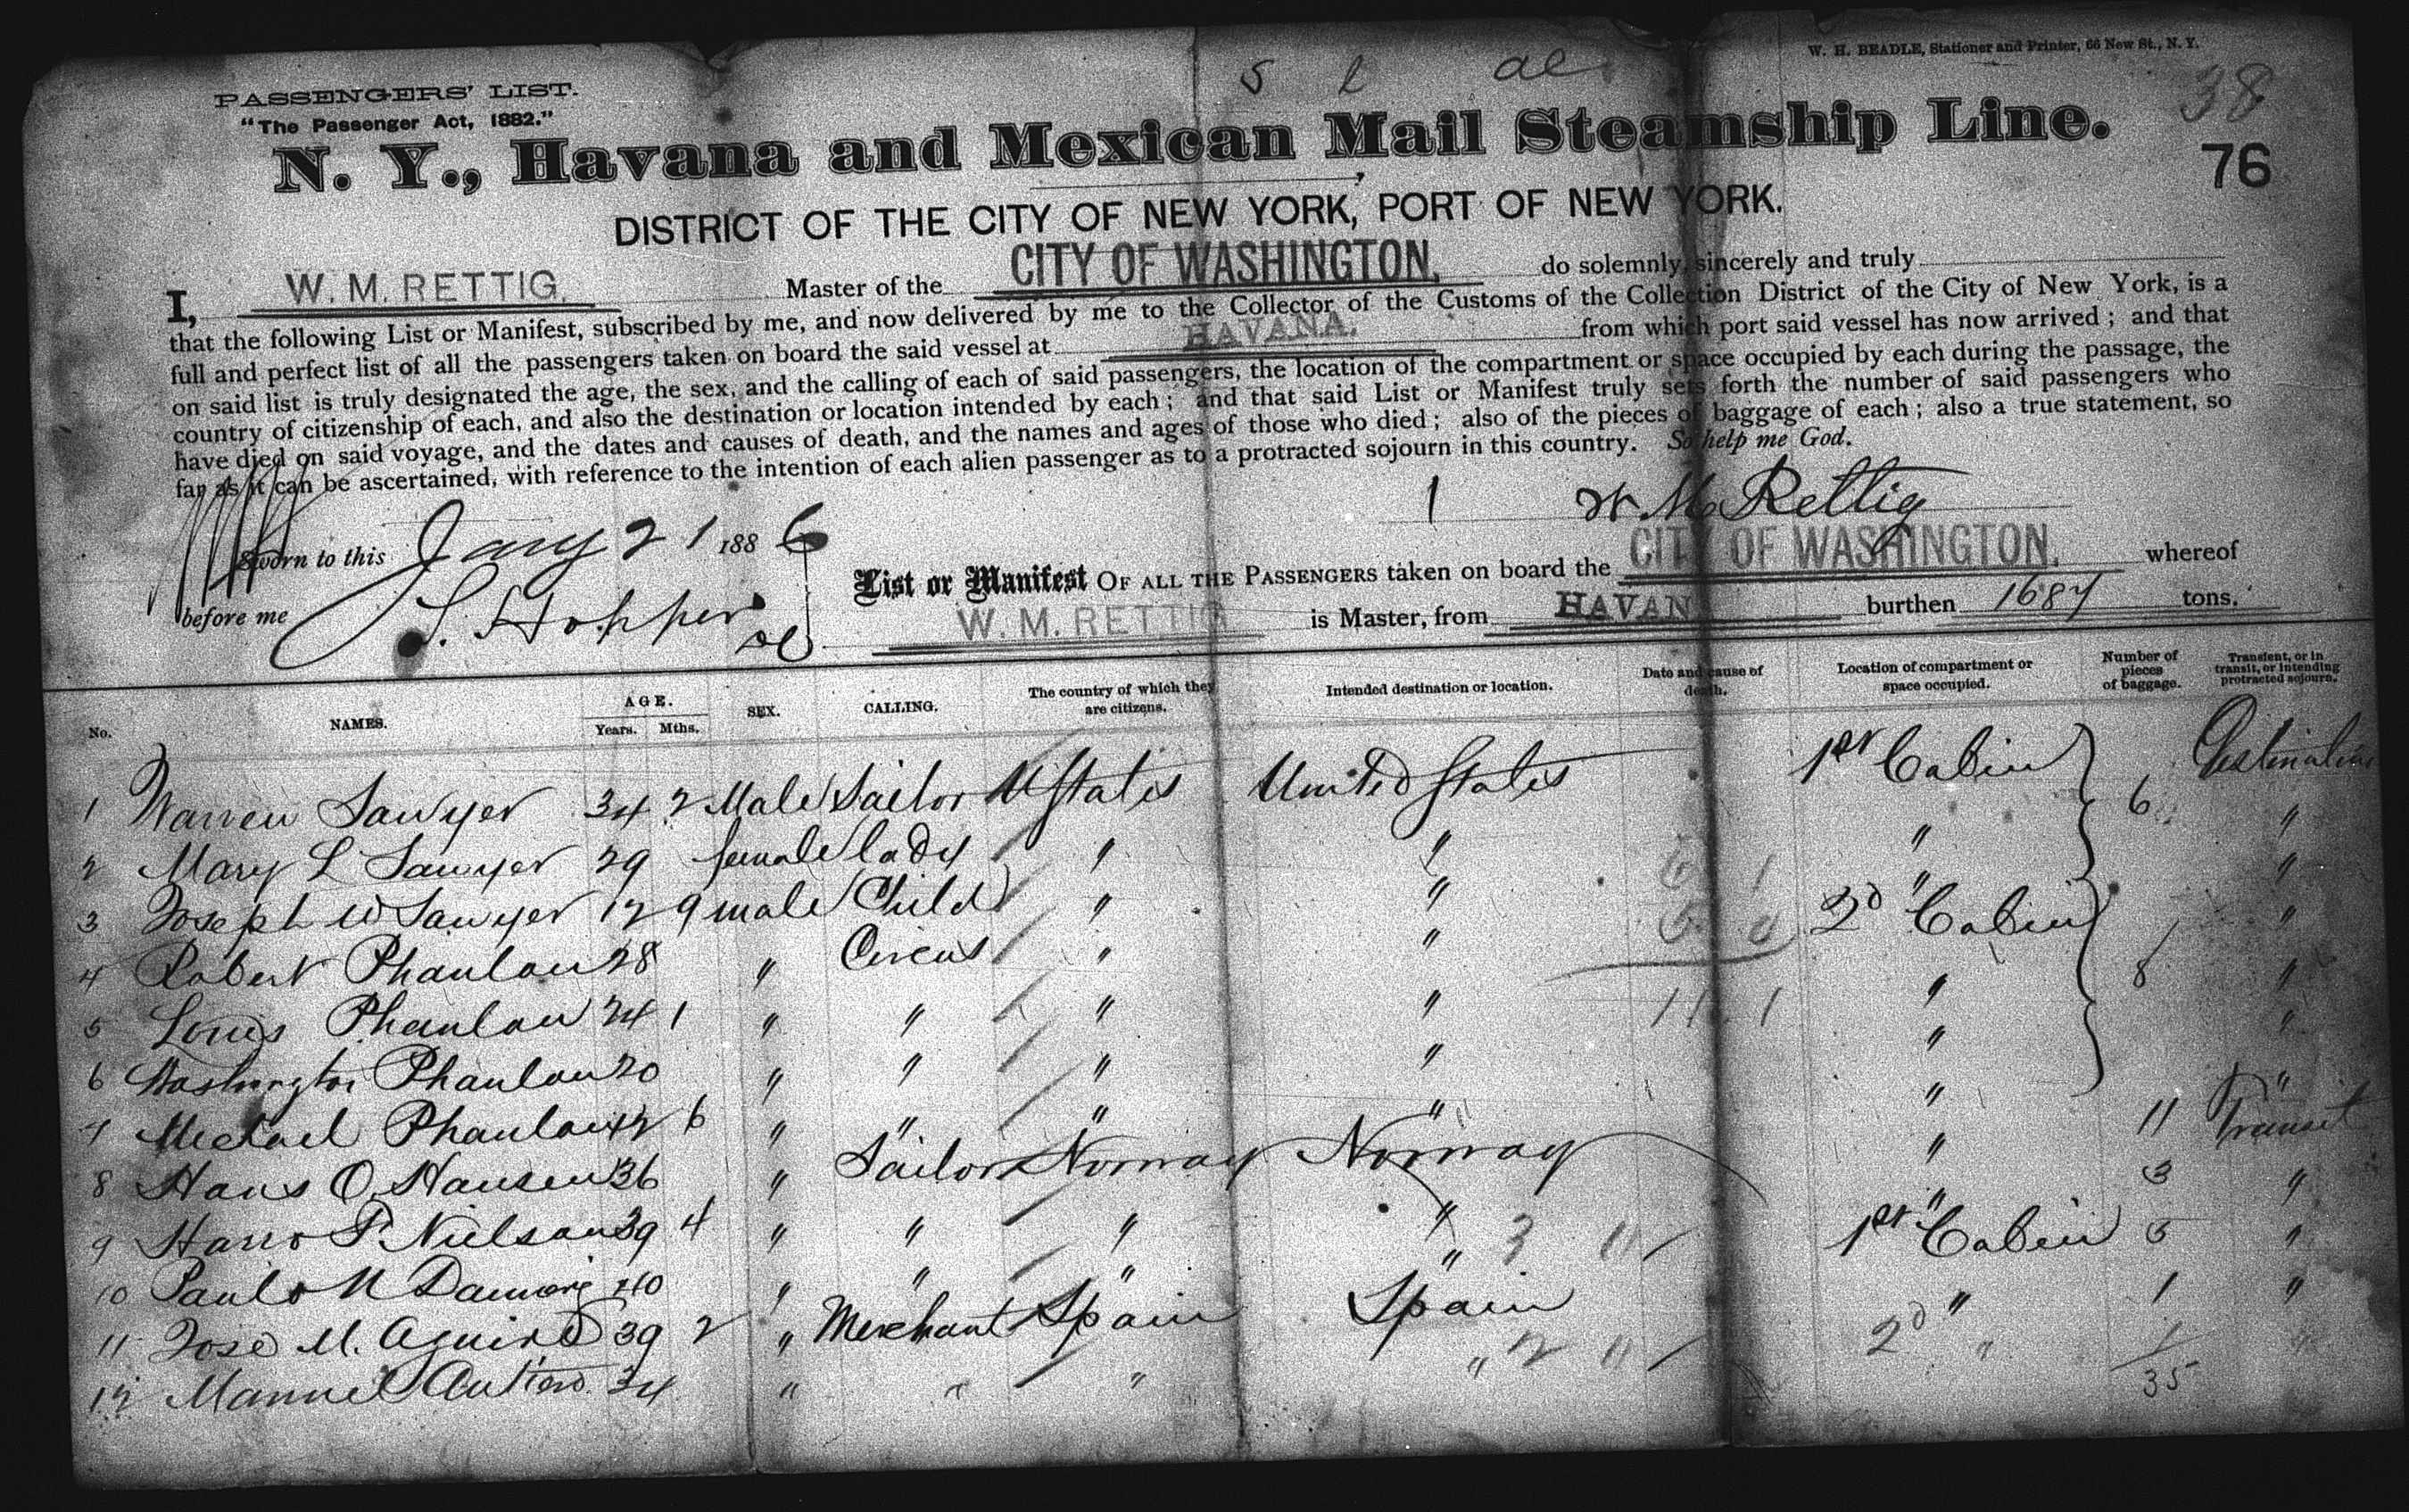 W. H. BEADLE, Stationer and Printer, 66 New St., N. Y.
PASSENGERS' LIST.
"The Passenger Act, 1882."
38
N. Y., Havana and Mexican Mail Steamship Line.
76
DISTRICT OF THE CITY OF NEW YORK, PORT OF NEW YORK.
I, W. M. RETTIG, Master of the CITY OF WASHINGTON, do solemnly, sincerely and truly
that the following List or Manifest, subscribed by me, and now delivered by me to the Collector of the Customs of the Collection District of the City of New York, is a
full and perfect list of all the passengers taken on board the said vessel at HAVANA, from which port said vessel has now arrived; and that
on said list is truly designated the age, the sex, and the calling of each of said passengers, the location of the compartment or space occupied by each during the passage, the
country of citizenship of each, and also the destination or location intended by each; and that said List or Manifest truly sets forth the number of said passengers who
have died on said voyage, and the dates and causes of death, and the names and ages of those who died; also of the pieces of baggage of each; also a true statement, so
far as it can be ascertained, with reference to the intention of each alien passenger as to a protracted sojourn in this country. So help me God.
W M Rettig
Sworn to this Jany 21 1886
before me S. Hopper
List or Manifest OF ALL THE PASSENGERS taken on board the CITY OF WASHINGTON, whereof
W. M. RETTIG is Master, from HAVAN burthen 1687 tons.
No. NAMES. AGE. Years. Mths. SEX. CALLING. The country of which they are citizens. Intended destination or location. Date and cause of death. Location of compartment or space occupied. Number of pieces of baggage. Transient, or in transit, or intending protracted sojourn.
1 Warren Sawyer 34 2 Male Sailor U States United States 1st Cabin 6 Destination
2 Mary L Sawyer 29 female lady " " " "
3 Joseph W Sawyer 12 9 male Child " " " "
4 Robert Phanlon 28 " Circus " " 2d Cabin "
5 Louis Phanlon 24 1 " " " " " 8 "
6 Washington Phanlon 20 " " " " " "
7 Michael Phanlon 12 6 " " " " " "
8 Hans O. Hansen 36 " Sailor Norway Norway " 11 Transit
9 Hans P. Nielsan 39 4 " " " " " 3 "
10 Paulo N 40 " " " " 1st Cabin 5 "
11 Jose M. Aguire 39 2 " Merchant Spain Spain " 1 "
12 Manuel 34 " " " " 2d " 1 "
35